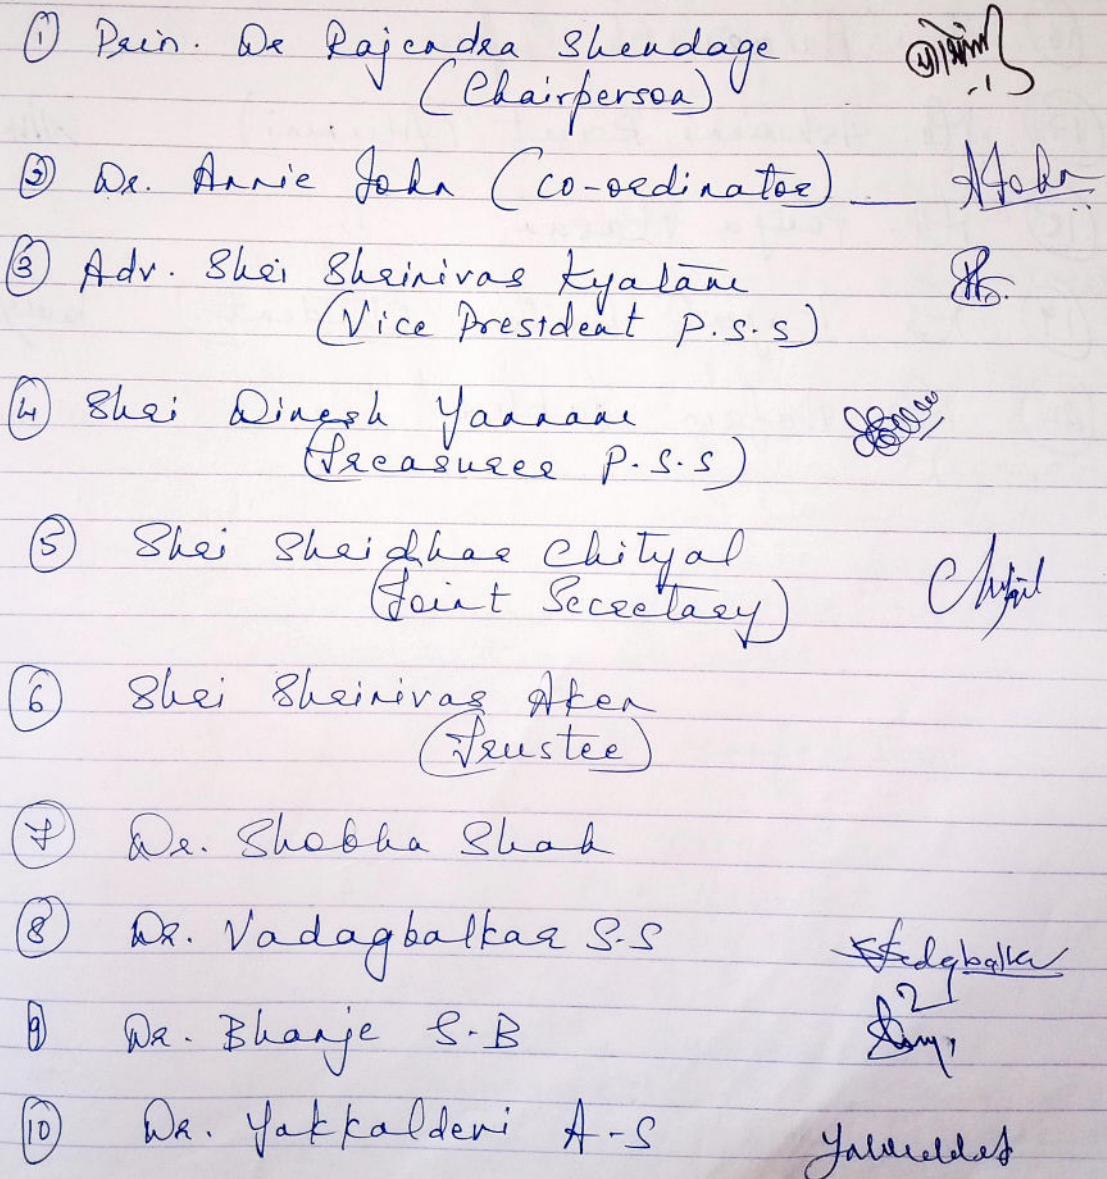 ① Prin. Dr Rajendra Shendage
(Chairperson)
② Dr. Annie John (co-ordinator) — AJohn
③ Adv. Shri Shrinivas Kyatam
(Vice President P.S.S)
④ Shri Dinesh Yannam
(Treasurer P.S.S)
⑤ Shri Shridhar Chityal
(Joint Secretary)
⑥ Shri Shrinivas Aken
(Trustee)
⑦ Dr. Shobha Shah
⑧ Dr. Vadagbalkar S.S
⑨ Dr. Bhanje S.B
⑩ Dr. Yakkaldevi A-S